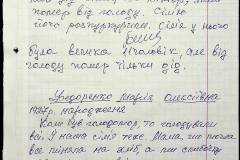 помер від голоду. Сім'ю
його розкуркурили. Сім'я у нього
була велика 11 чоловік, але від
голоду помер тільки дід.
Федоренко Марія Олексіївна
1927 р. народження
Коли був голодомор, то голодували
всі. У нашій сім'ї теж. Мама, що могла
все міняла на хліб, а ми